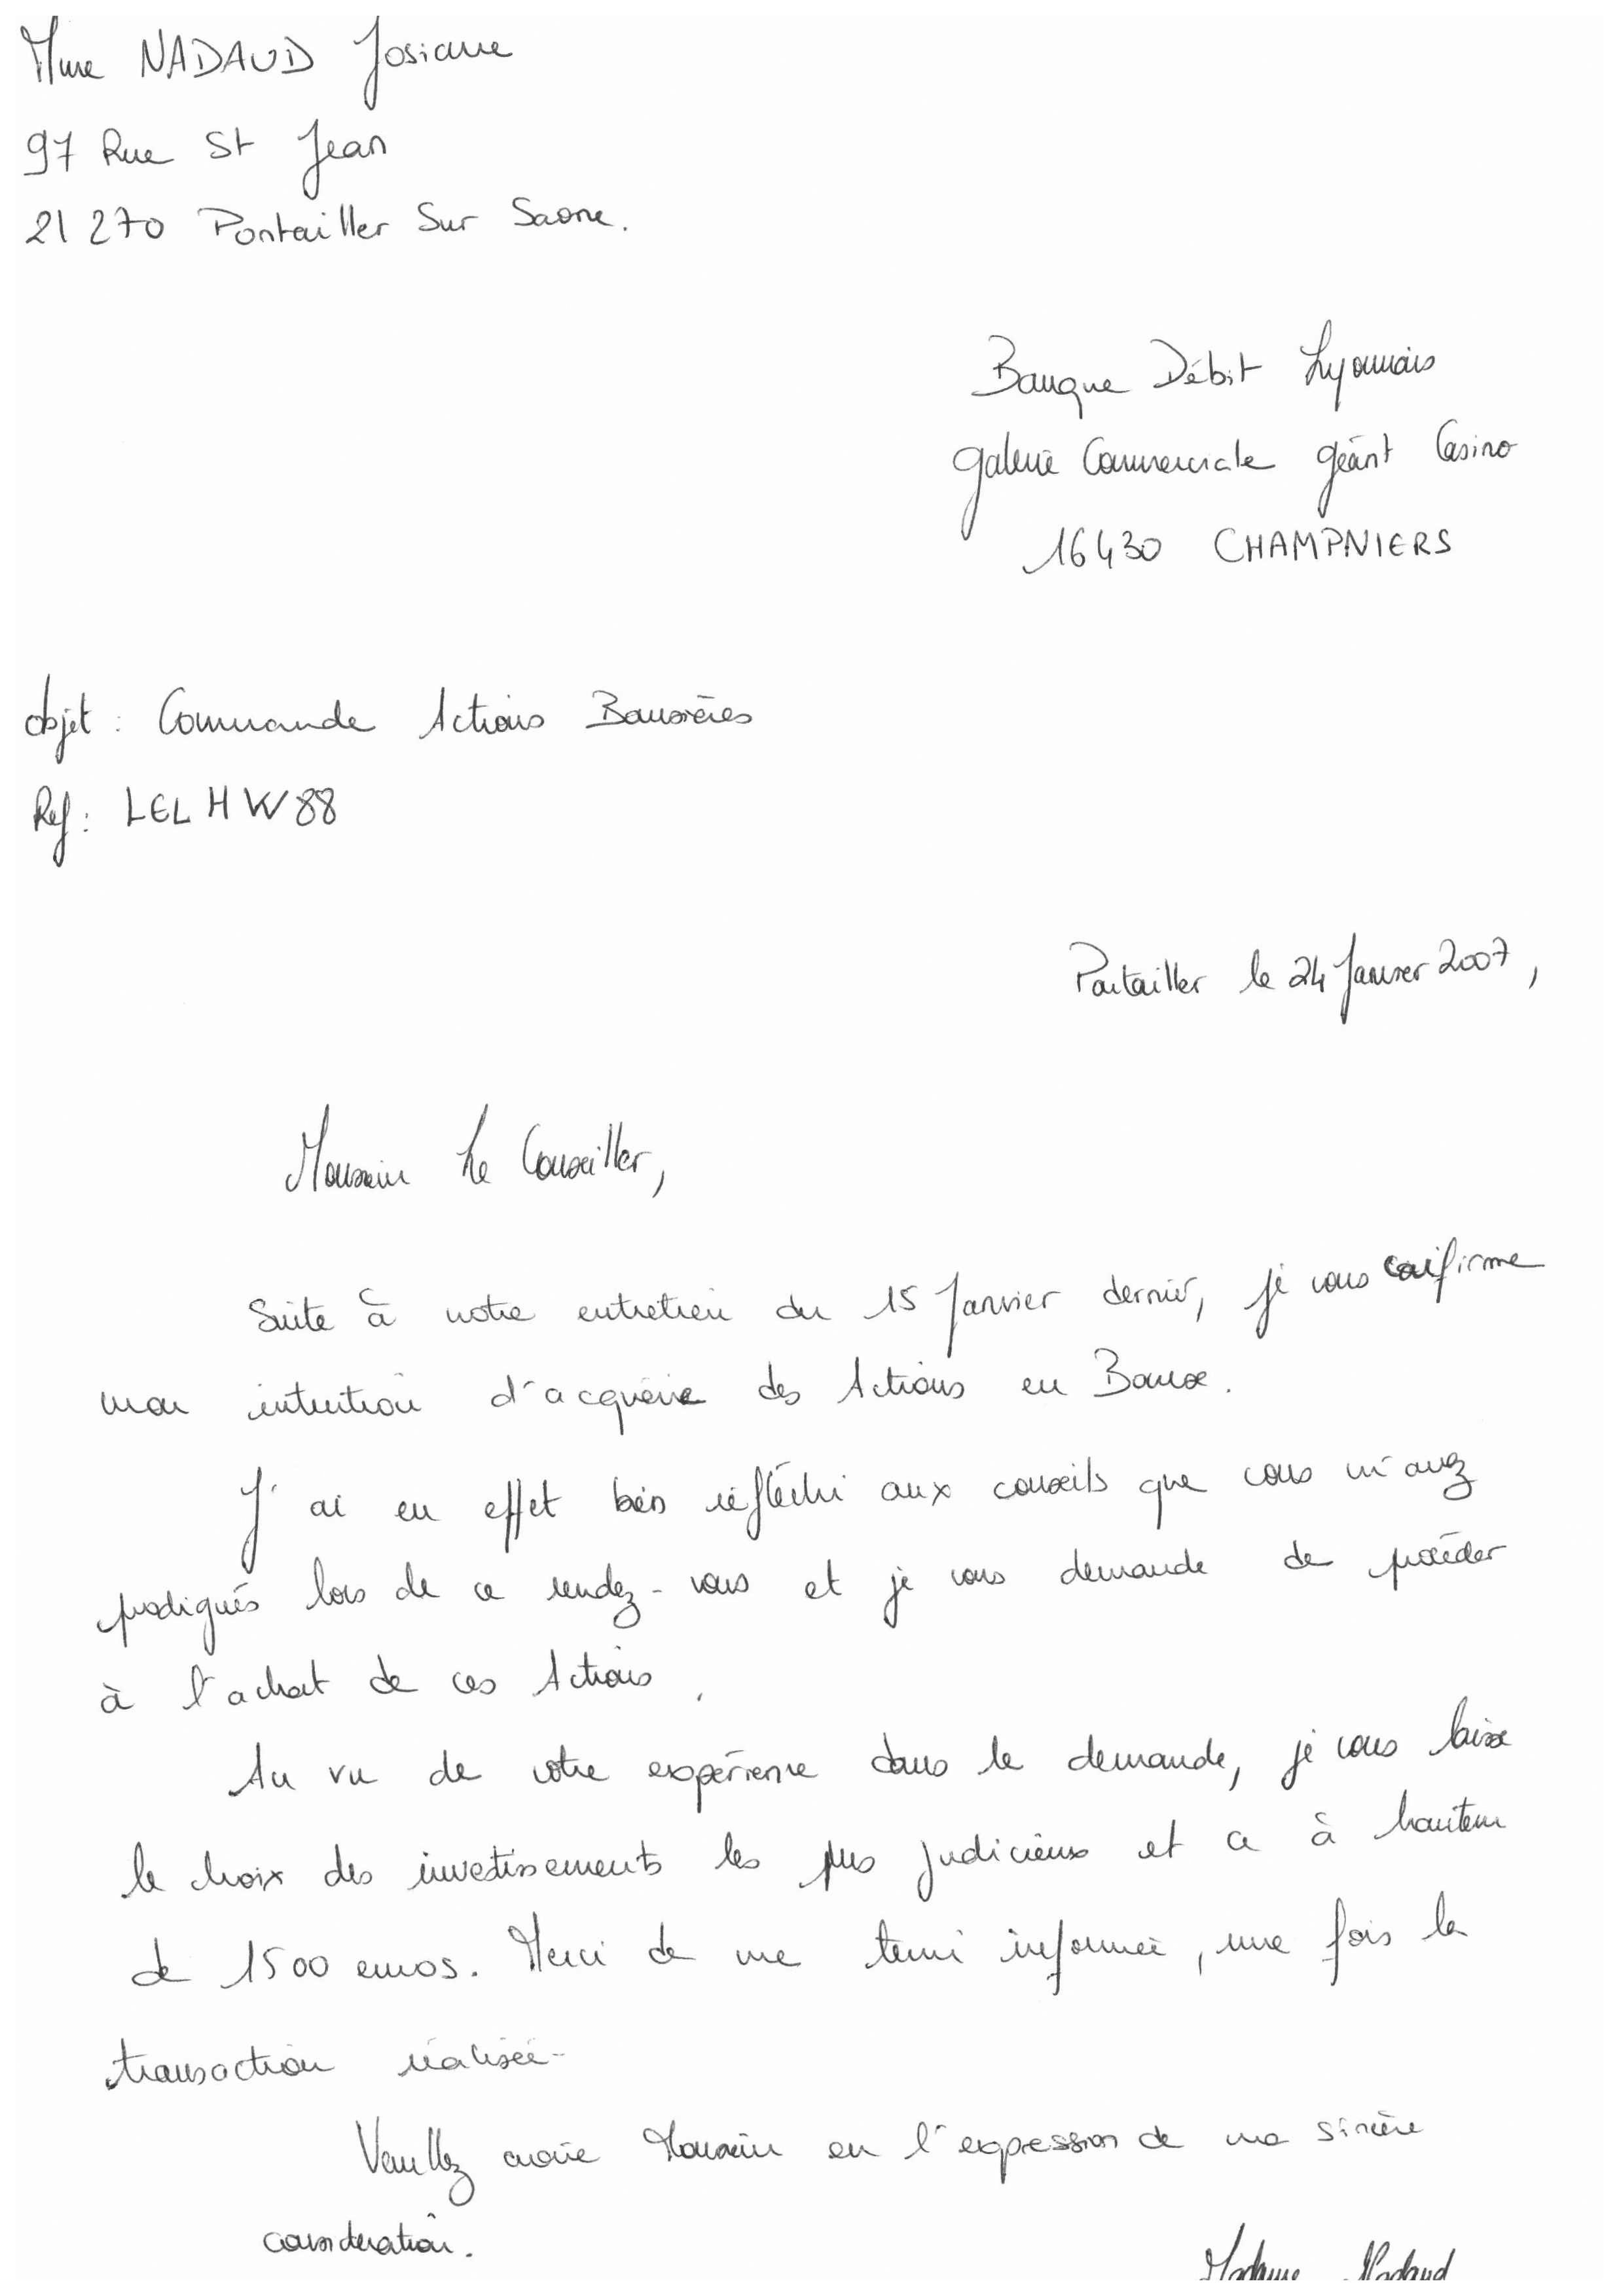 Mme NADAUD Josiane
97 Rue St Jean
21270 Pontailler Sur Saone.
Banque Débit Lyonnais
galerie Commerciale géant Casino
16430 CHAMPNIERS
objet : Commande Actions Boursières
Ref : LELHW88
Pontailler le 24 Janvier 2007,
Monsieur Le Conseiller,
Suite à notre entretien du 15 Janvier dernier, je vous confirme
mon intention d'acquérir des Actions en Bourse.
J'ai en effet bien réfléchi aux conseils que vous m'avez
prodigués lors de ce rendez-vous et je vous demande de procéder
à l'achat de ces Actions.
Au vu de votre expérience dans le demande, je vous laisse
le choix des investissements les plus judicieux et ce à hauteur
de 1500 euros. Merci de me tenir informée, une fois la
transaction réalisée-
Veuillez croire Monsieur en l'expression de ma sincère
considération.
Madame Nadaud